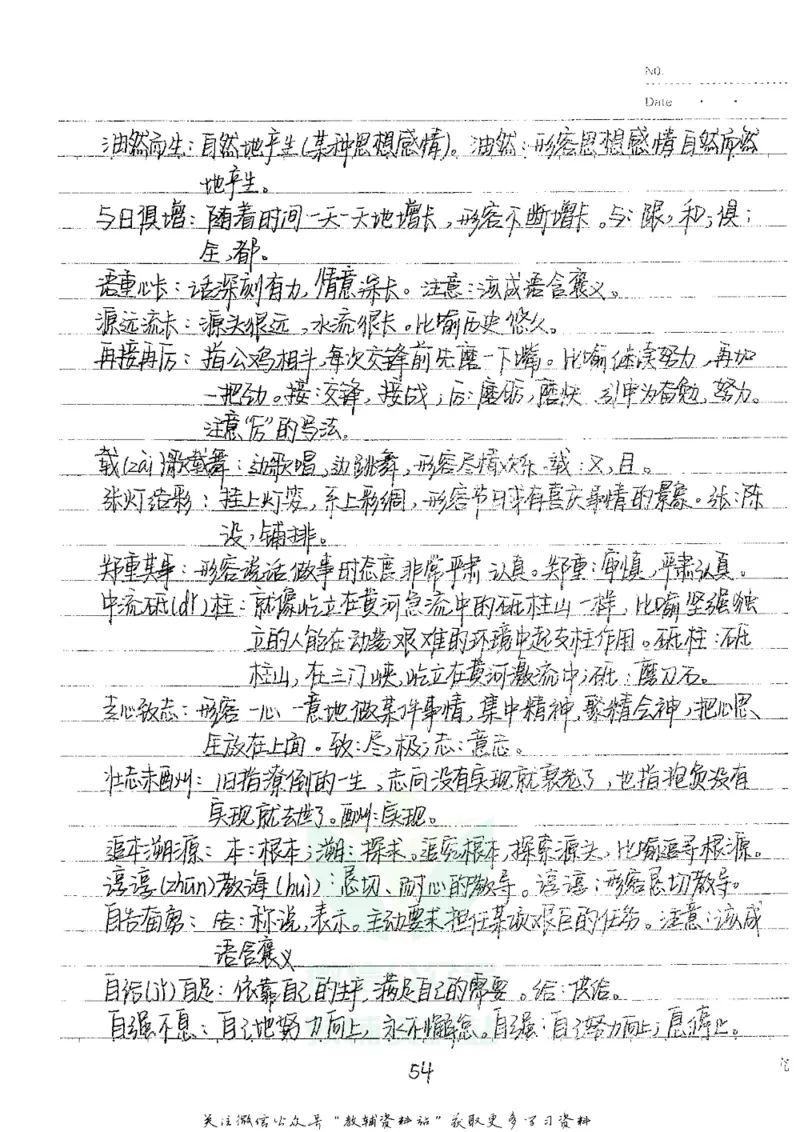 No.
Date
油然而生：自然地产生(某种思想感情)。油然：形容思想感情自然而然
地产生。
与日俱增：随着时间一天一天地增长，形容不断增长。与：跟，和；俱：
全，都。
语重心长：话深刻有力，情意深长。注意：该成语含褒义。
源远流长：源头很远，水流很长。比喻历史悠久。
再接再厉：指公鸡相斗，每次交锋前先磨一下嘴。比喻继续努力，再加
一把劲。接：交锋，接战；厉：磨砺，磨快，引申为奋勉，努力。
注意“厉”的写法。
载(zài)歌载舞：边歌唱，边跳舞，形容尽情欢乐。载：又，且。
张灯结彩：挂上灯笼，系上彩绸，形容节日或有喜庆事情的景象。张：陈
设，铺排。
郑重其事：形容说话做事时态度非常严肃认真。郑重：审慎，严肃认真。
中流砥(dǐ)柱：就像屹立在黄河急流中的砥柱山一样，比喻坚强独
立的人能在动荡艰难的环境中起支柱作用。砥柱：砥
柱山，在三门峡，屹立在黄河激流中；砥：磨刀石。
专心致志：形容一心一意地做某件事情，集中精神，聚精会神，把心思、
全放在上面。致：尽，极；志：意志。
壮志未酬：旧指潦倒的一生，志向没有实现就衰老了，也指抱负没有
实现就去世了。酬：实现。
追本溯源：本：根本；溯：探求。追究根本，探索源头，比喻追寻根源。
谆谆(zhūn)教诲(huì)：恳切、耐心的教导。谆谆：形容恳切教导。
自告奋勇：告：称说，表示。主动要求担任某项艰巨的任务。注意：该成
语含褒义
自给(jǐ)自足：依靠自己的生产，满足自己的需要。给：供给。
自强不息：自己地努力向上，永不懈怠。自强：自己努力向上；息：停止。
54
关注微信公众号“教辅资料站”获取更多学习资料